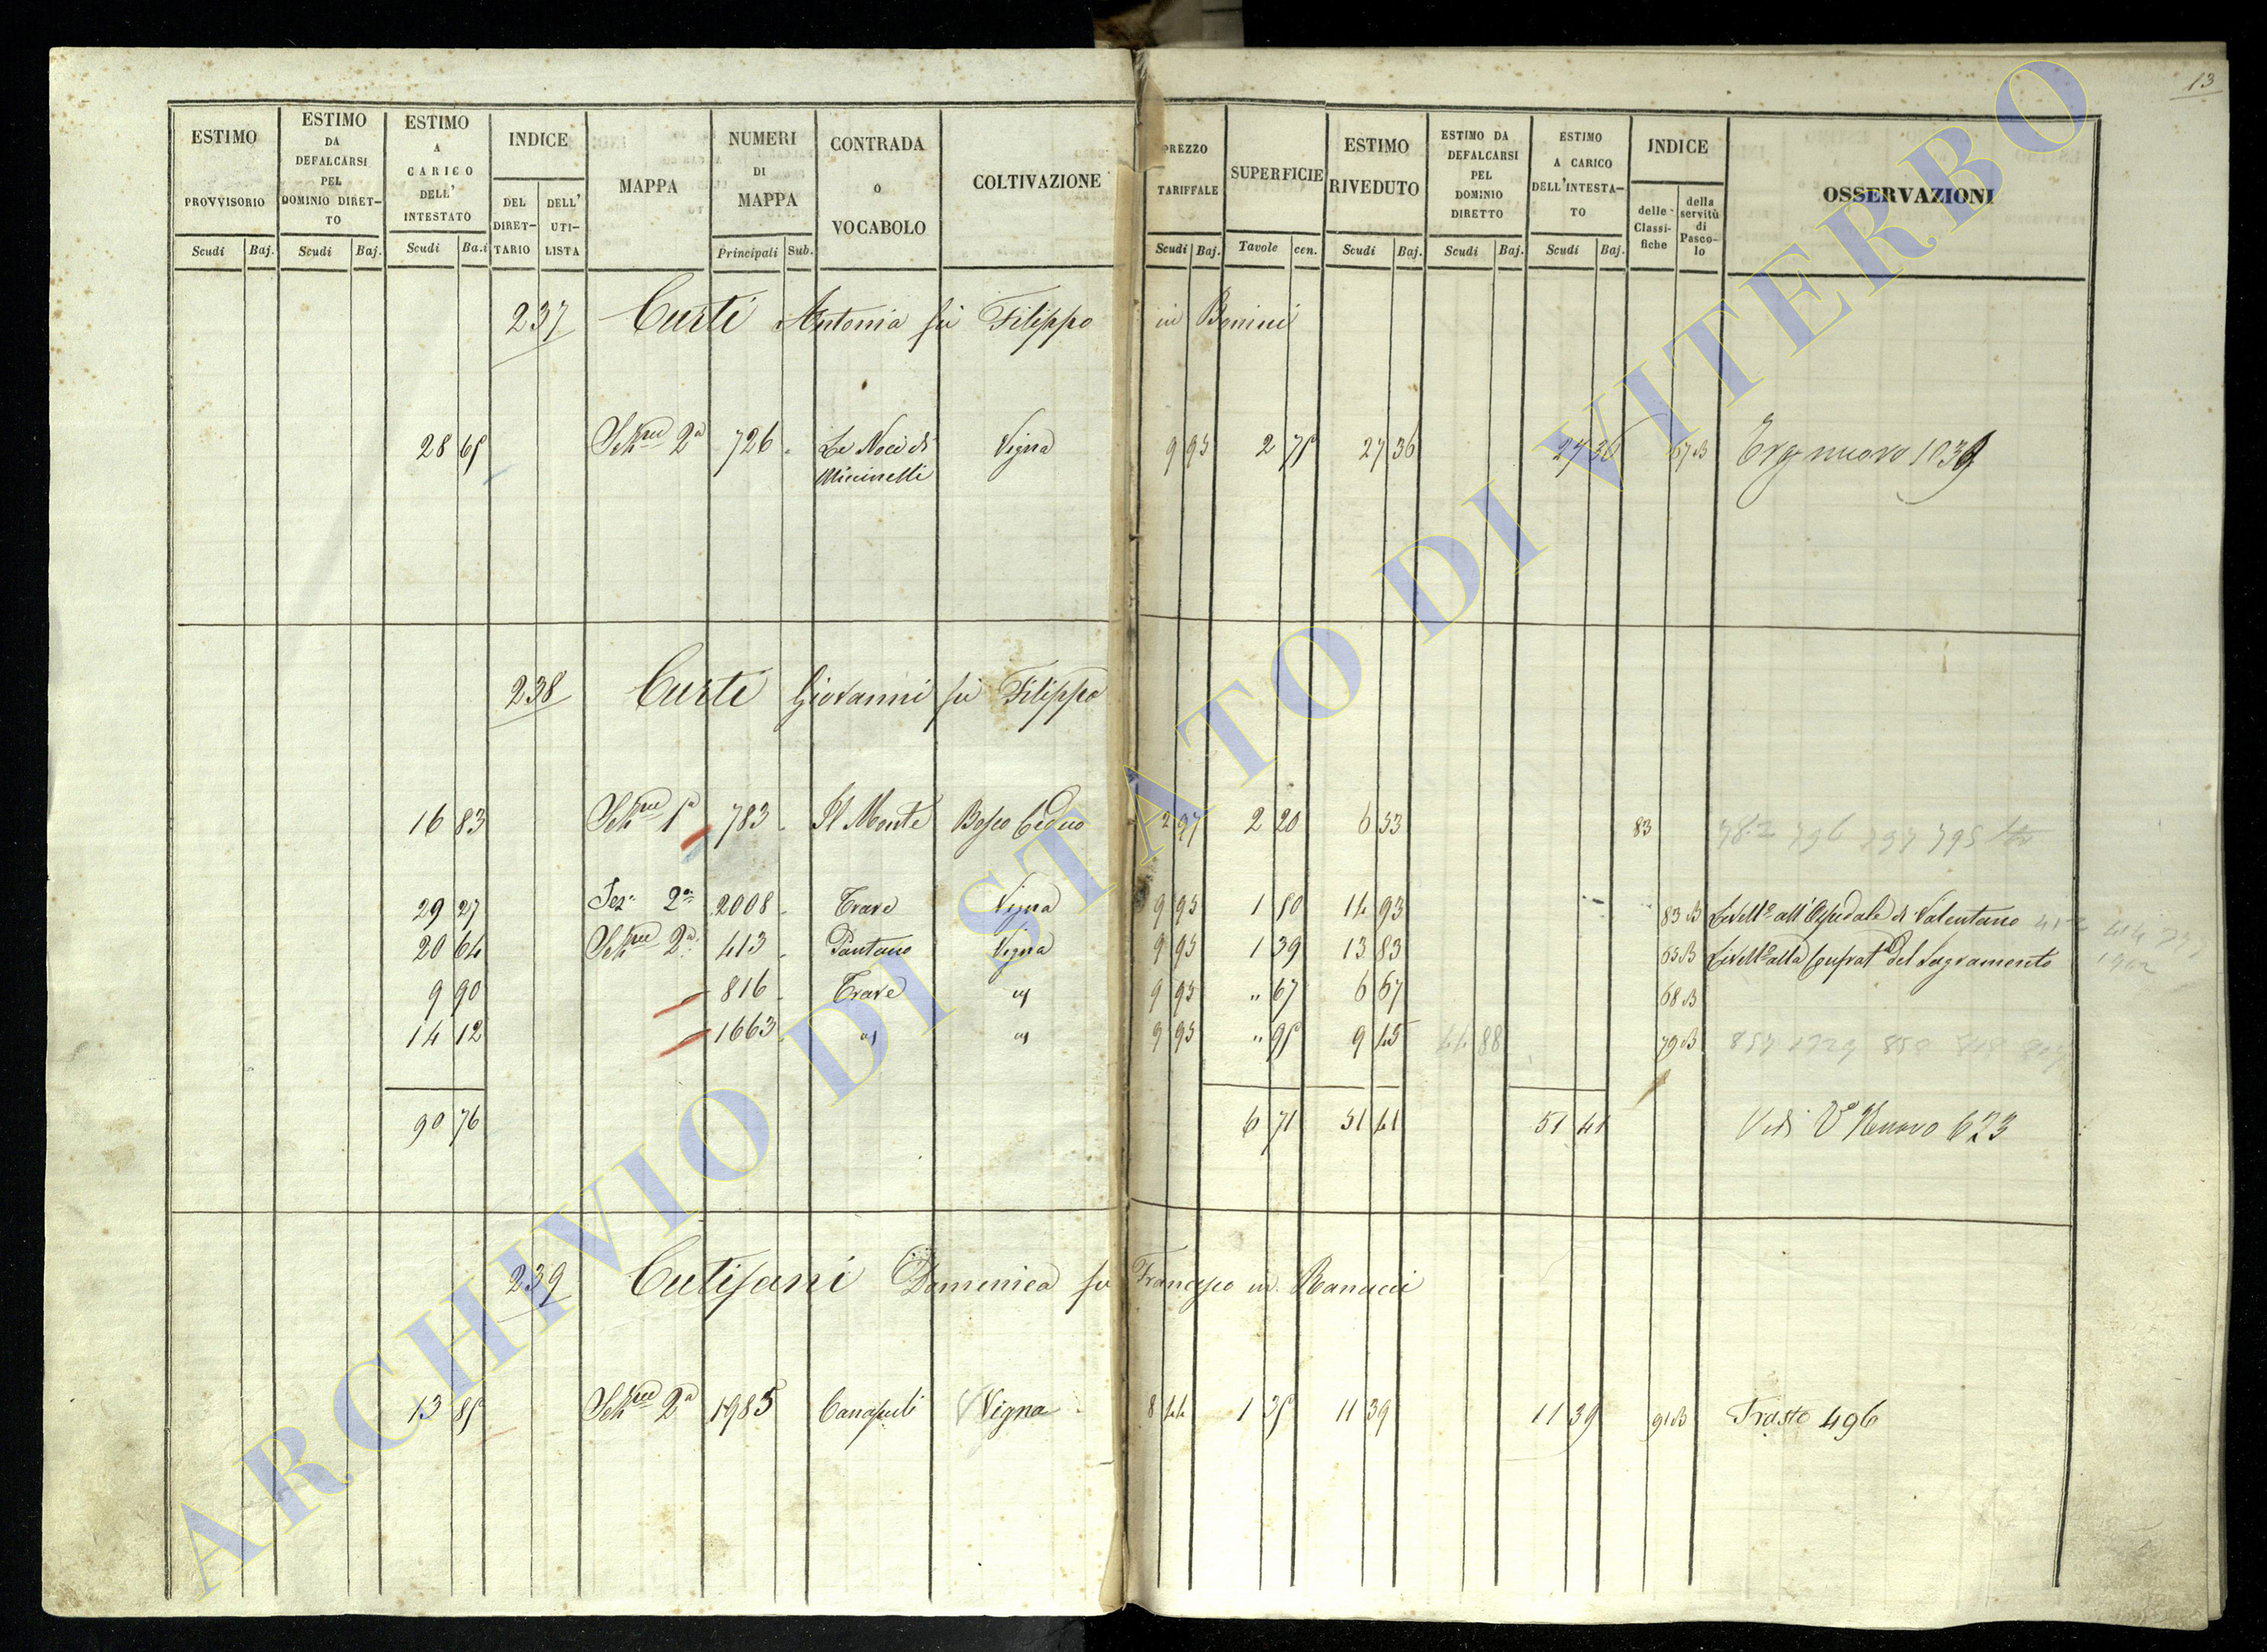 13
ESTIMO PROVVISORIO Scudi Baj.
ESTIMO DA DEFALCARSI PEL DOMINIO DIRET-TO Scudi Baj.
ESTIMO A CARICO DELL' INTESTATO Scudi Ba.i
INDICE DEL DIRET-TARIO DELL' UTI-LISTA
MAPPA
NUMERI DI MAPPA Principali Sub.
CONTRADA o VOCABOLO
COLTIVAZIONE
PREZZO TARIFFALE Scudi Baj.
SUPERFICIE Tavole cen.
ESTIMO RIVEDUTO Scudi Baj.
ESTIMO DA DEFALCARSI PEL DOMINIO DIRETTO Scudi Baj.
ESTIMO A CARICO DELL'INTESTA-TO Scudi Baj.
INDICE delle Classi-fiche della servitù di Pasco-lo
OSSERVAZIONI
237 Curti Antonia fu Filippo in Bonini
726 Le Noci di Vigna 9 93 27 36 27 36 67 B nuovo 1039
238 Curti Giovanni fu Filippo
16 83 1a 783 Il Monte Bosco Ceduo 2 97 2 20 6 53 83
29 27 Sez. 2a 2008 Trave Vigna 9 93 1 50 14 93 83 B Livello all'Ospedale di Valentano
20 64 2a 413 Pantano Vigna 9 93 1 39 13 83 65 B Livello alla Confrat. del Sagramento
9 90 816 Trave 9 93 " 67 6 67 68 B
14 12 1663 9 93 " 95 9 45 79 B
90 76 6 71 51 41 51 41 Vedi Nuovo 623
239 Cutisani Domenica fu Francesco in Ranucci
13 85 2a 1985 Canapuli Vigna 8 44 1 35 11 39 11 39 91 B 496
ARCHIVIO DI STATO DI VITERBO